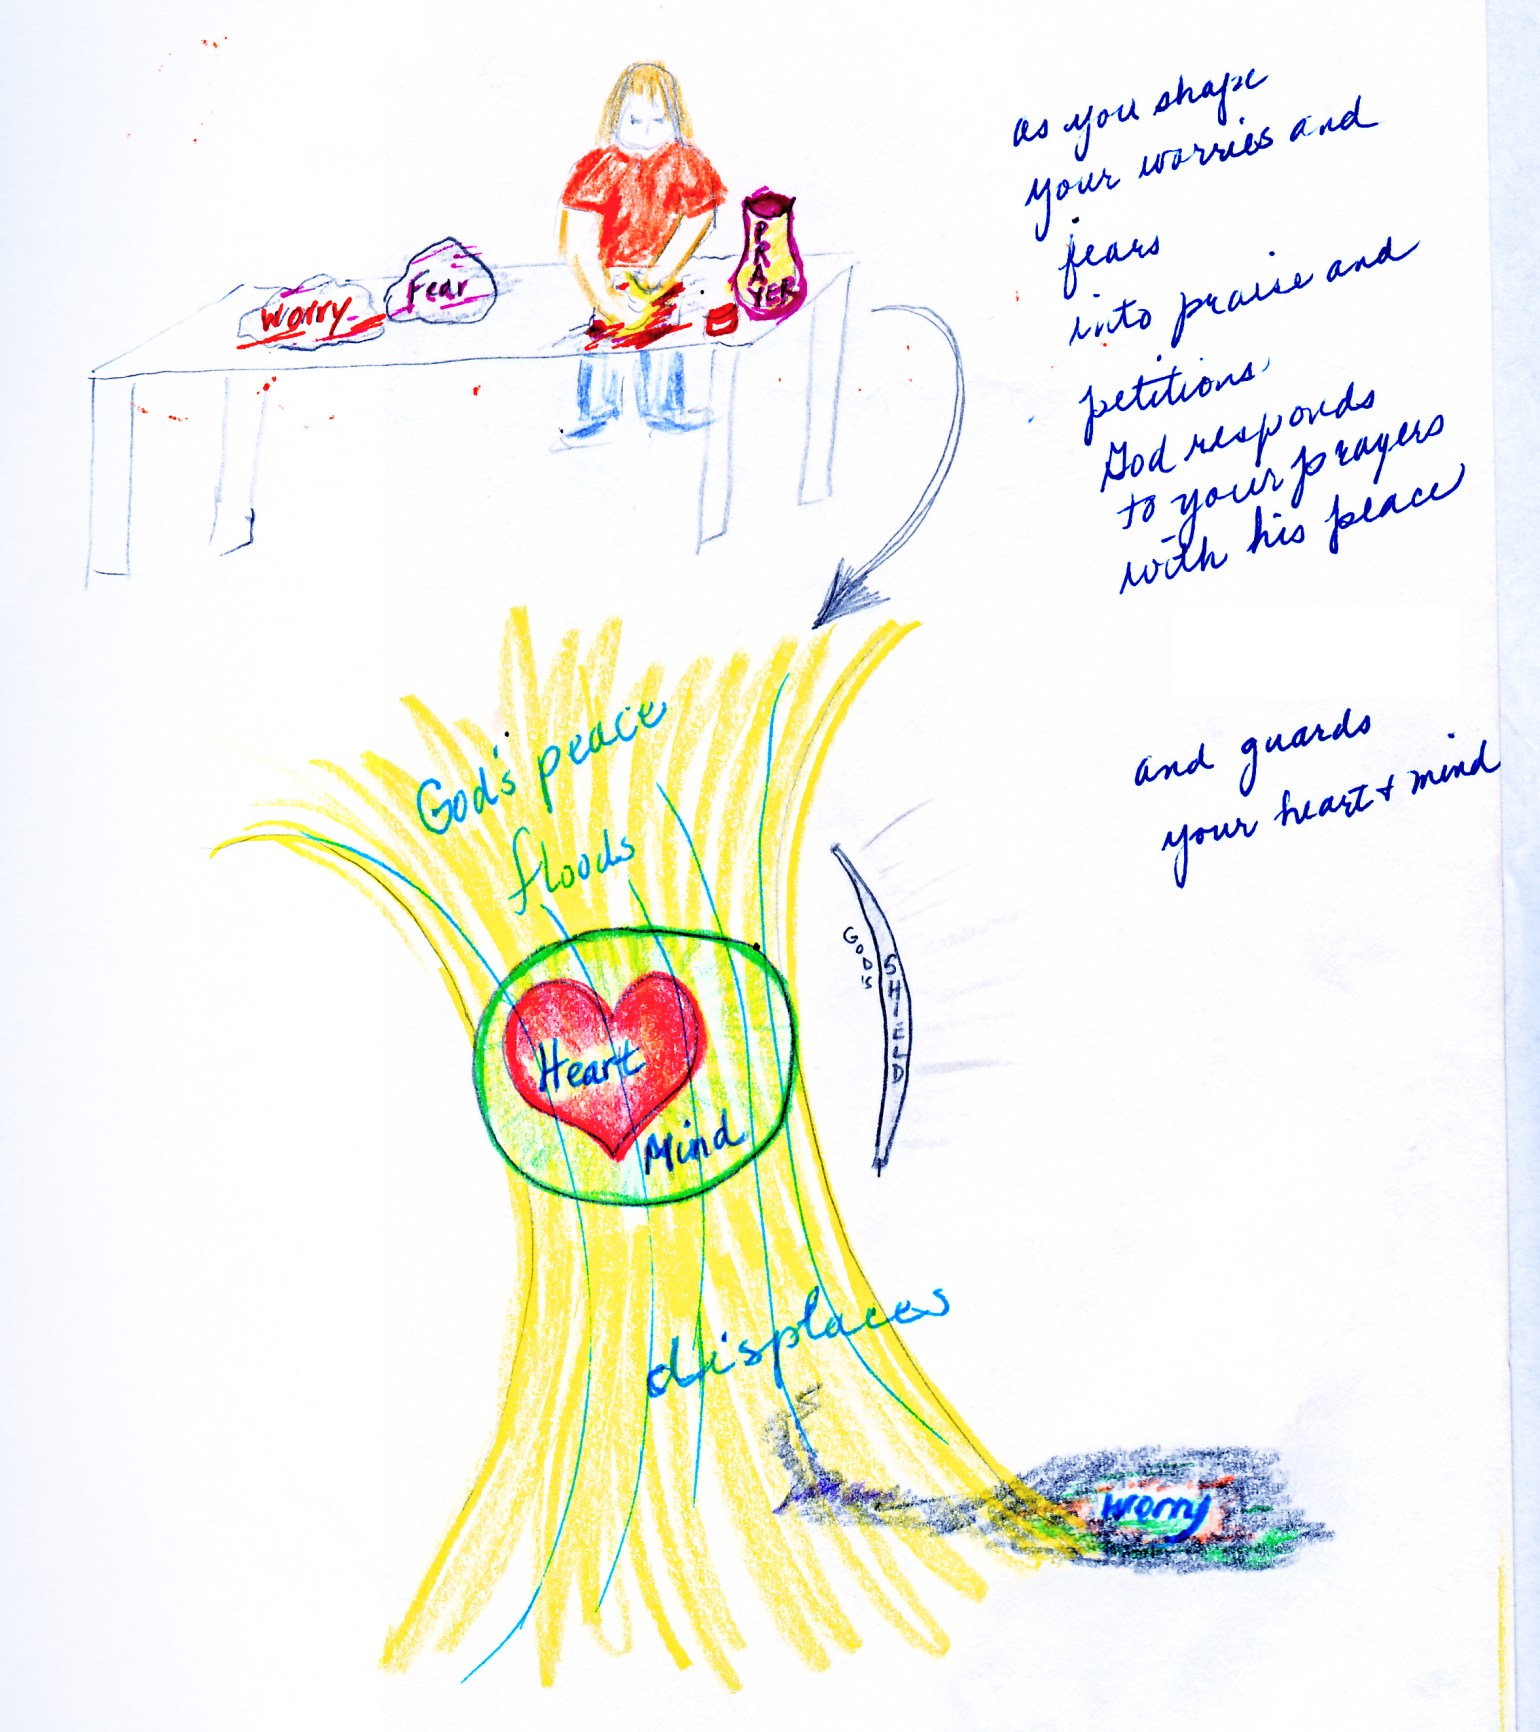 as you shape
your worries and
fears
into praise and
petitions
God responds
to your prayers
with his peace
and guards
your heart + mind
Worry
Fear
PRAYER
God's peace
floods
Heart
Mind
GODS
SHIELD
displaces
worry